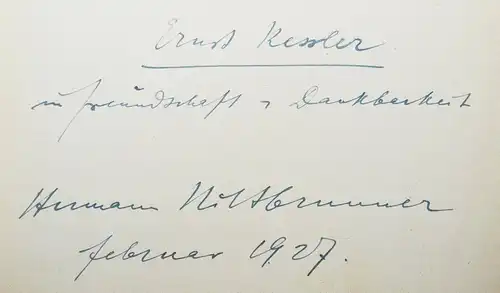 Ernst Kessler
in Freundschaft & Dankbarkeit
Hermann Hiltbrunner
Februar 1927.